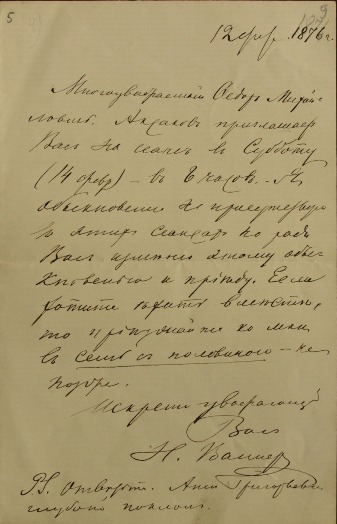 5
9
12 фев. 1876 г.
Многоуважаемый Ѳедоръ Михай-
ловичъ. Аксаковъ приглашаетъ
Васъ на сеансъ въ Субботу
(14 февр) – въ 8 часовъ. – Я
обыкновенно не присутствую
въ этихъ сеансахъ но ради
Васъ измѣню этому обык-
новенію и пріѣду. Если
хотите ѣхать вмѣстѣ,
то пріѣзжайте ко мнѣ
въ семь съ половиною – не
позже.
Искренно уважающій
Васъ
Н. Вагнеръ
P.S. Отвѣтьте. Аннѣ Григорьевнѣ
глубокій поклонъ.